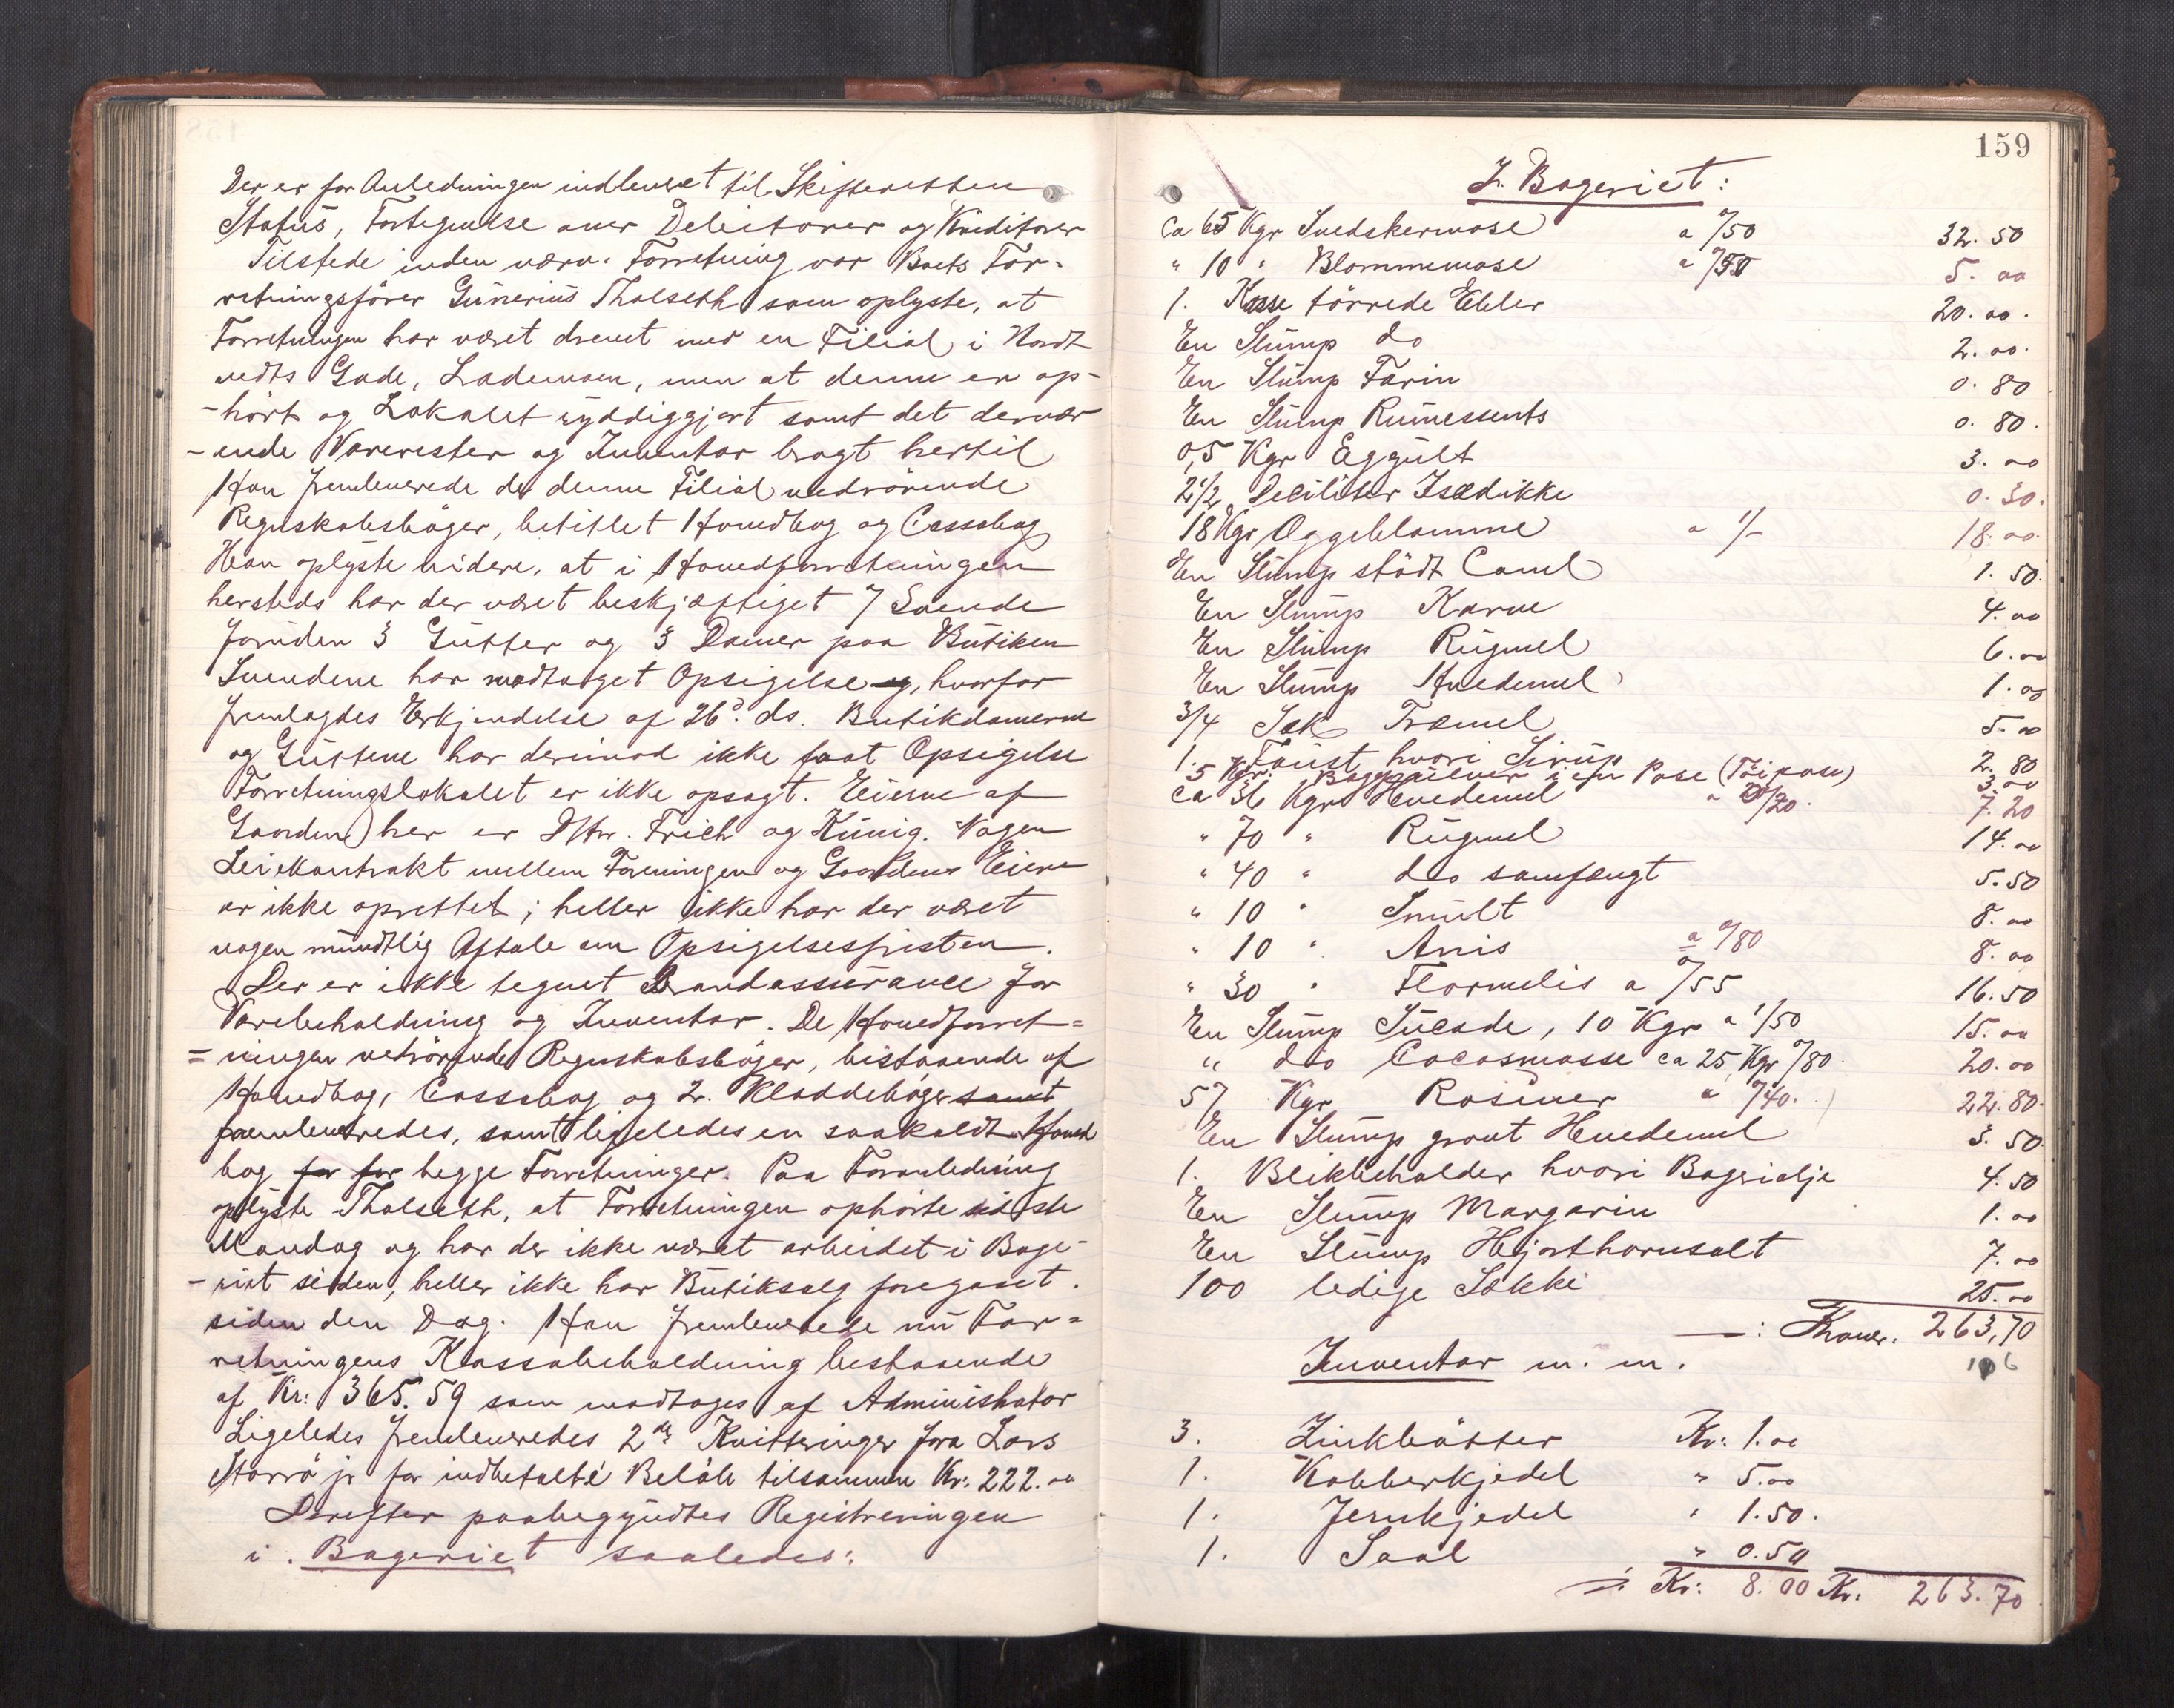 Der er for Anledningen indleveret til Skifteretten
Status, Fortegnelse over Debitorer og Kreditorer
Tilstede inden nærv. Forretning var Boets For-
retningsfører Gunerius Tholseth som oplyste, at
Forretningen har været drevet med en Filial i Nordt
vedts Gade, Lademoen, men at denne er op-
-hørt og Lokalet ryddiggjort samt det derver
-ende Varerester og Inventar bragt hertil
Han fremleverede de denne Filial vedrørende
Regnskabsbøger, betitlet Hovedbog og Cassabog
Han oplyste videre, at i Hovedforretningen
hersteds har der været beskjæftiget 7 Svende
foruden 3 Gutter og 3 Damer paa Butiken
Svendene har modtaget Opsigelse og, hvorfor
fremlagdes Erkjendelse af 26d. ds. Butikdamerne
og Gutterne har derimod ikke faat Opsigelse
Forretningslokalet er ikke opsagt. Eierne af
Gaarden her er DHrr. Frich og Kunig. Nogen
Leiekontrakt mellem Foreningen og Gaardens Eiere
er ikke oprettet; heller ikke har der været
nogen mundtlig Aftale om Opsigelsesfristen.
Der er ikke tegnet Brandassurance for
Varebeholdning og Inventar. De Hovedforret=
=ningen vedrørende Regnskabsbøger, bestaaende af
Hovedbog, Cassabog og 2. Kladdebøger samt
fremleveredes, samt ligeledes en saakaldt Hoved
bog for for begge Forretninger. Paa Foranledning
oplyste Tholseth, at Forretningen ophørte sidste
Mandag og har der ikke været arbeidet i Bage-
-riet siden, heller ikke har Butiksalg foregaaet.
siden den Dag. Han fremleverede nu For=
retningens Kassabeholdning bestaaende
af Kr: 365.59 som modtages af Administrator
Ligeledes fremleveredes 2de Kvitteringer fra Lars
Storrø jr for indbetalte Beløb tilsammen Kr: 222.00
Derefter paabegyndtes Registreringen
i. Bageriet saaledes:
159
I. Bageriet:
Ca 65 Kgr Svedskermose a 0/50 32.50
" 10 " Blommemose a 0/50 5.00
1. Kasse tørrede Ebler 20.00.
En Slump do 2.00.
En Slump Farin 0.80
En Slump Rumessents 0.80.
0,5 Kgr Eggult 3.00
2 1/2 Deciliter Isedikke 0.30.
18 Kgr Æggeblomme a 1/- 18.00.
En Slump stødt Canel 1.50.
En Slump Karve 4.00
En Slump Rugmel 6.00
En Slump Hvedemel 1.00
3/4 Sæk Træmel 5.00
1. Faust hvori Sirup 2.80
5 Kgr. Baggpulver i en Pose (Tøipose) 3.00
Ca 36 Kgr Hvedemel " 0/20. 7.20
" 70 " Rugmel 14.00
" 40 " do samfængt 5.50
" 10 " Smult 8.00
" 10 " Anis a 0/80 8.00
" 30 " Flormelis a 0/55 16.50
En Slump Sucade, 10 Kgr a 1/50 15.00
" do Cocosmasse ca 25 Kgr 0/80 20.00
57 Kgr Rosiner " 0/40. 22.80.
En Slump grovt Hvedemel 3.50
1. Blikbeholder hvori Bageriolje 4.50
En Slump Margarin 1.00
En Slump Hjorthornsalt 7.00
100 ledige Sække 25.00
—: Kroner. 263,70
Inventar m. m.
3. Zinkbøtter Kr: 1.00
1. Kobberkjedel " 5.00
1. Jernkjedel " 1.50.
1. Saal " 0.50
Kr: 8.00 Kr: 263.70